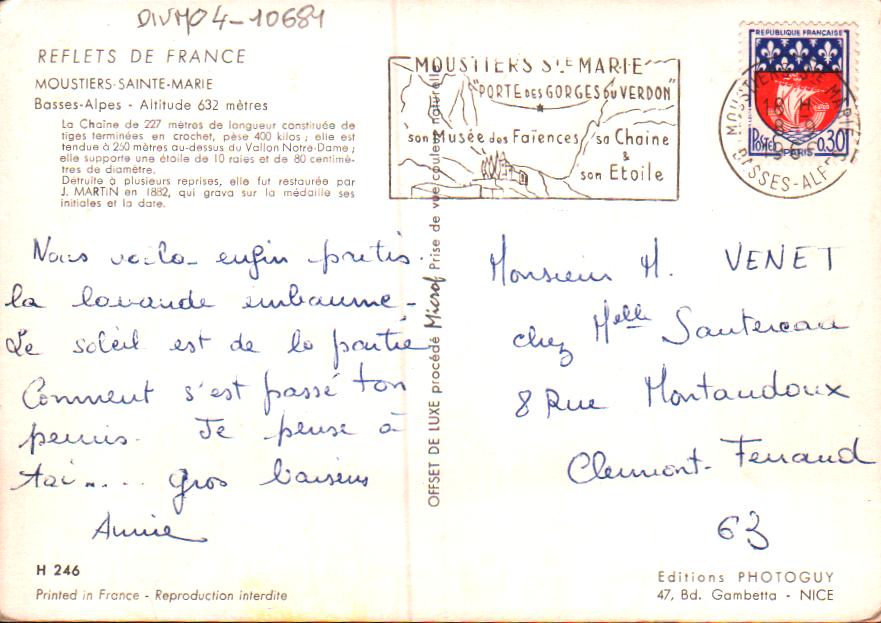 DIVM04-10681
REFLETS DE FRANCE
MOUSTIERS-SAINTE-MARIE
Basses-Alpes - Altitude 632 mètres
La Chaîne de 227 mètres de longueur constituée de
tiges terminées en crochet, pèse 400 kilos ; elle est
tendue à 250 mètres au-dessus du Vallon Notre-Dame ;
elle supporte une étoile de 10 raies et de 80 centimè-
tres de diamètre.
Détruite à plusieurs reprises, elle fut restaurée par
J. MARTIN en 1882, qui grava sur la médaille ses
initiales et la date.
Nous voila enfin partis.
la lavande embaume -
Le soleil est de la partie
Comment s'est passé ton
permis. Je pense à
toi..... Gros baisers
Annie
H 246
Printed in France - Reproduction interdite
OFFSET DE LUXE procédé Micro Prise de vue couleur naturelle
MOUSTIERS STE MARIE
"PORTE DES GORGES DU VERDON"
son Musée des Faïences sa Chaine
&
son Etoile
MOUSTIERS STE MARIE
18 H
BASSES-ALPES
REPUBLIQUE FRANÇAISE
POSTES PARIS 0,30
Monsieur M. VENET
chez Melle Sautereau
8 Rue Montaudoux
Clermont-Ferrand
63
Editions PHOTOGUY
47, Bd. Gambetta - NICE